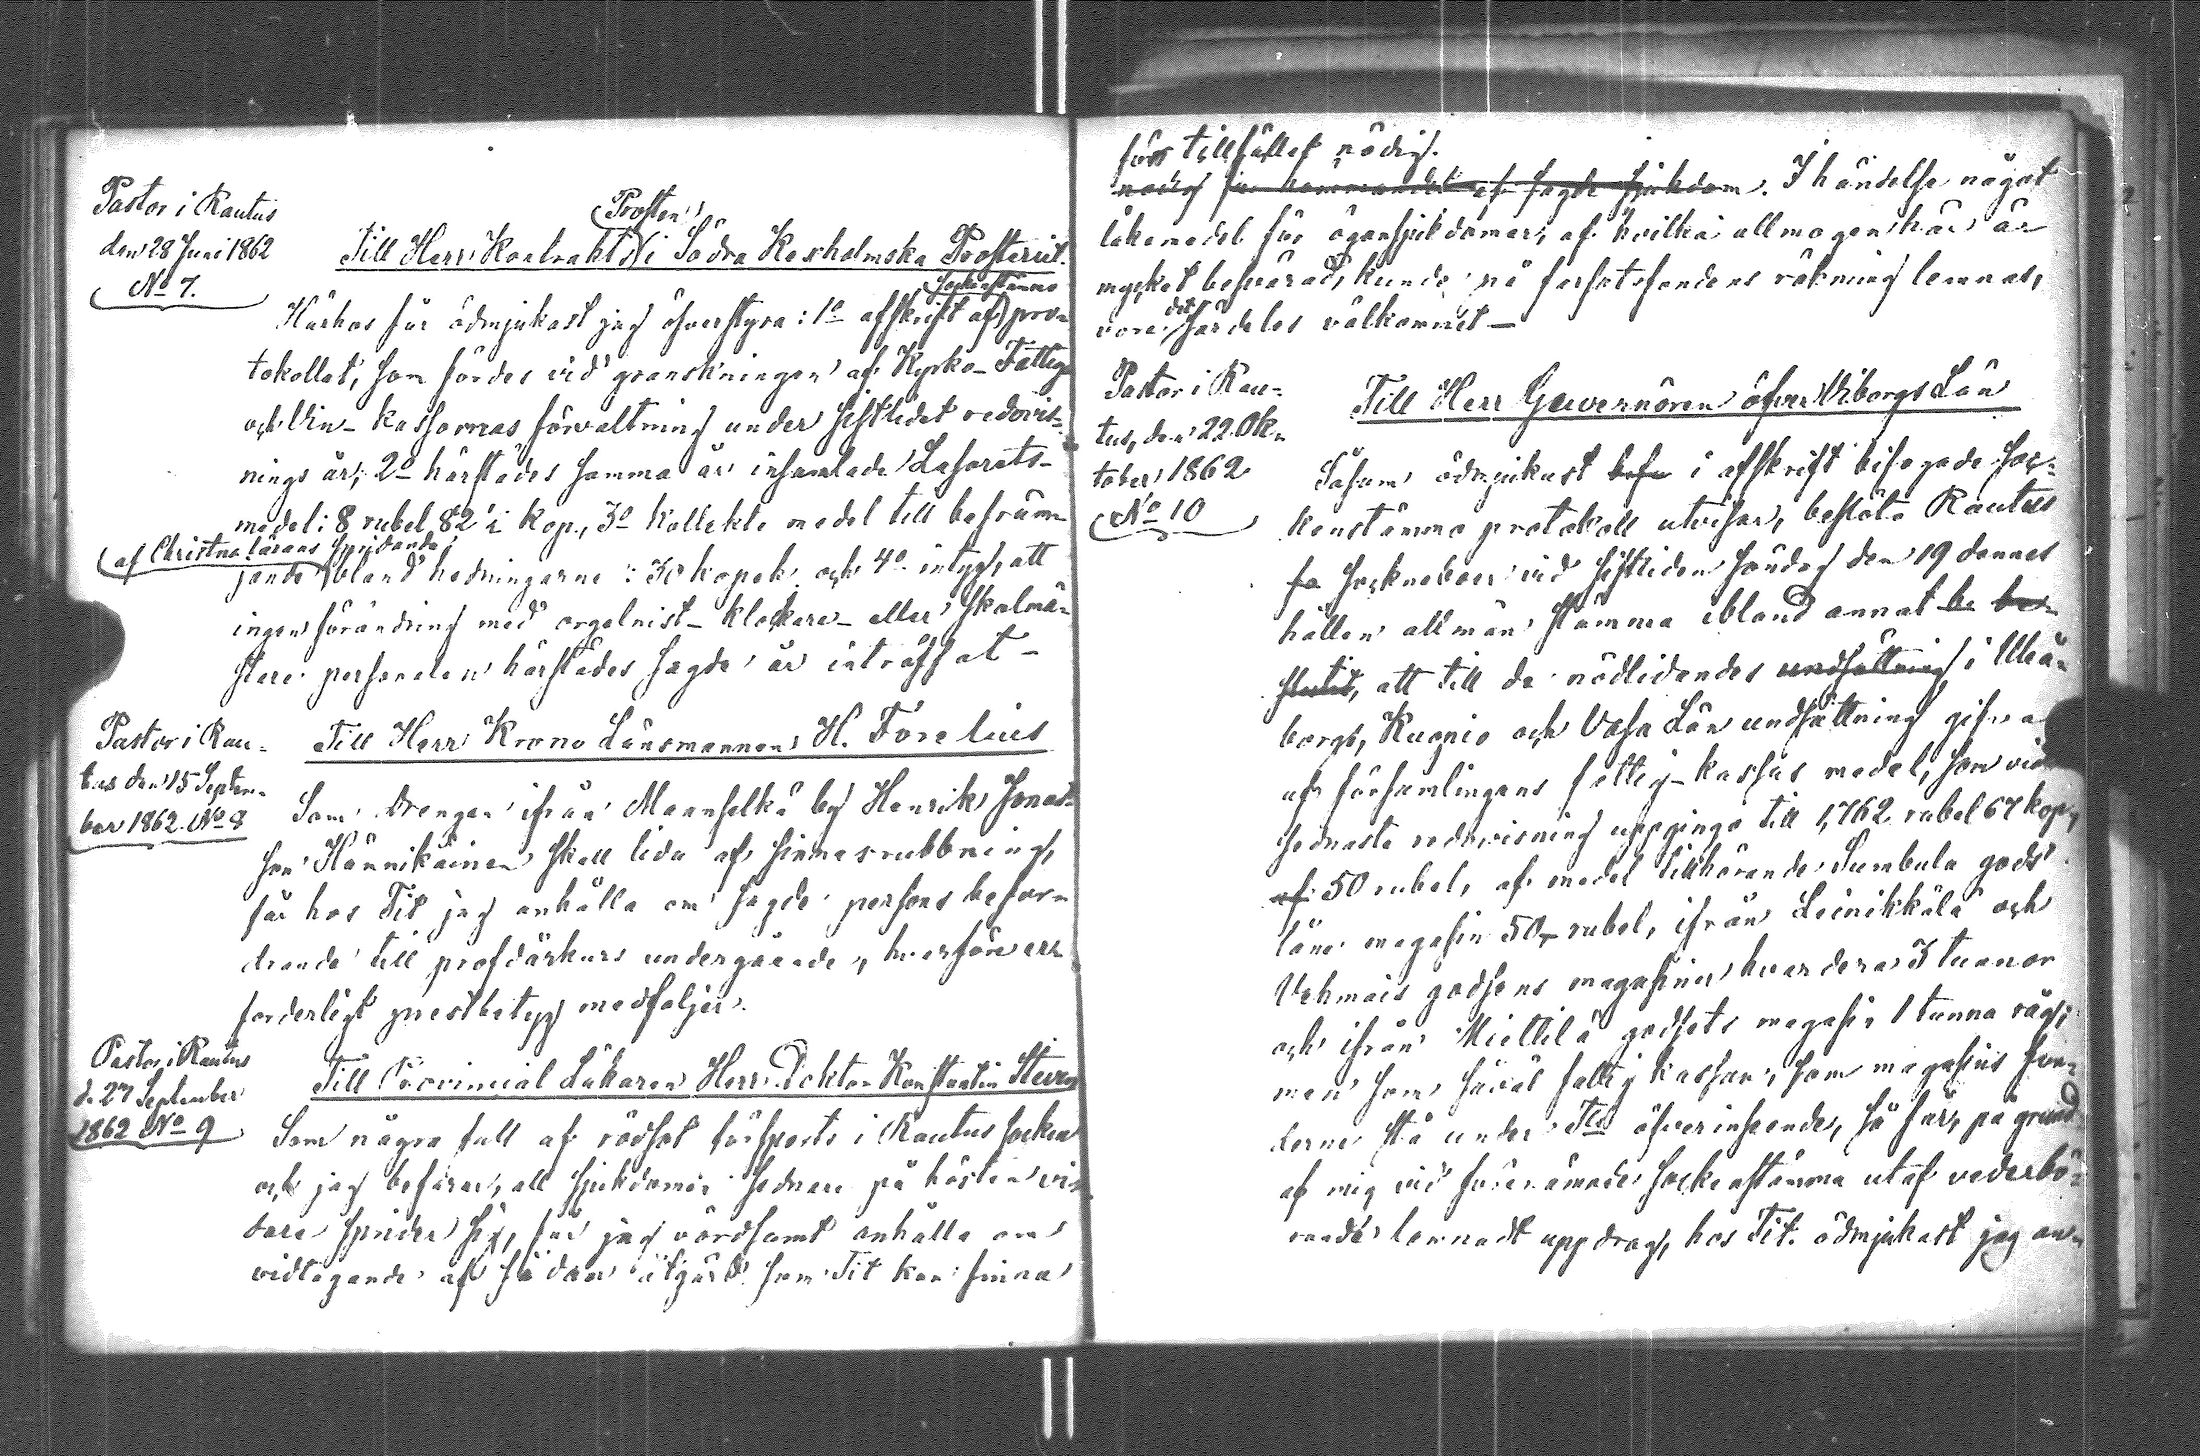 Pastor i Rautus
den 28 Juni 1862
No 7.
Prosten
Till Herr Kontrakts i Södra Kexholmska Prosteriet.
Sockenstämmo
Härhos får ödmjukast jag öfverstyra: 1o afskrift af pro-
tokollet, som fördes vid granskningen af Kyrko- Fattig
och Vin- kassornas förvaltning under sistledet redovis-
nings år; 2o härstädes samma år insamlade Lasarets-
medel: 8 rubel 82 1/2 kop., 3o kollekte medel till befräm-
af Christna lärans spridande
jande bland hedningarne: 30 kopek och 4o intyg, att
ingen förändring med orgelnist- klockare- eller skolmä-
stare personalen härstädes sagde år inträffat -
Pastor i Rau-
tus den 15 Septem-
ber 1862. No 8
Till Herr Krono Länsmannen H. Forelius
Som drengen ifrån Mannselkä by Henrik Jonas-
son Hännikäinen skall lida af sinnesrubbning,
får hos Tit jag anhålla om sagde persons befor-
drande till profdårkurs undergående, hvarföre er-
forderligt prestbetyg medföljer.
Pastor i Rautus
d. 27 September
1862 No 9
Till Provincial Läkaren Herr Doktor Konstantin
Som några fall af rödsot försports i Rautus socken
och jag befarar, att sjukdomen sednare på hösten vi-
dare sprider sig, får jag vördsamt anhålla om
vidtagande af sådan åtgärd som Tit kan finna
för tillfället nödig.
nödig för hämmandet af sagde sjukdom. I händelse något
läkemedel för ögonsjukdomar, af hvilka allmogen här är
mycket besvärad, kunde på farsotsfondens räkning lemnas,
vore det särdeles välkommet -
Pastor i Rau-
tus, den 22 Ok-
tober 1862
No 10
Till Herr Guvernören öfver Wiborgs Län
Såsom ödmjukast i afskrift bifogade soc-
kenstämmo protokoll utvisar, beslöto Rautus
sockneboer vid sistliden söndag den 19 dennes
hållen allmän stämma ibland annat be be-
slutit, att till de nödlidandes undsättning i Uleå-
borgs, Kuopio och Vasa Län undsättning gifva
af församlingens fattig-kassas medel, som vid
sednaste redovisning uppgingo till 1,762 rubel 67 kop,
af 50 rubel, af medel tillhörande Sumbula gods
låne magasin 50 rubel, ifrån Leinikkälä och
Vehmais godsens magasiner hvardera 3 tunnor
och ifrån Miettilä godsets magasin 1 tunna råg;
men som såväl fattig kassan, som magasins fon-
derne stå under Tits öfverinseende, så får, på grund
af mig vid förenämnde sockenstämma utaf vederbö-
rande lemnadt uppdrag, hos Tit. ödmjukast jag an-